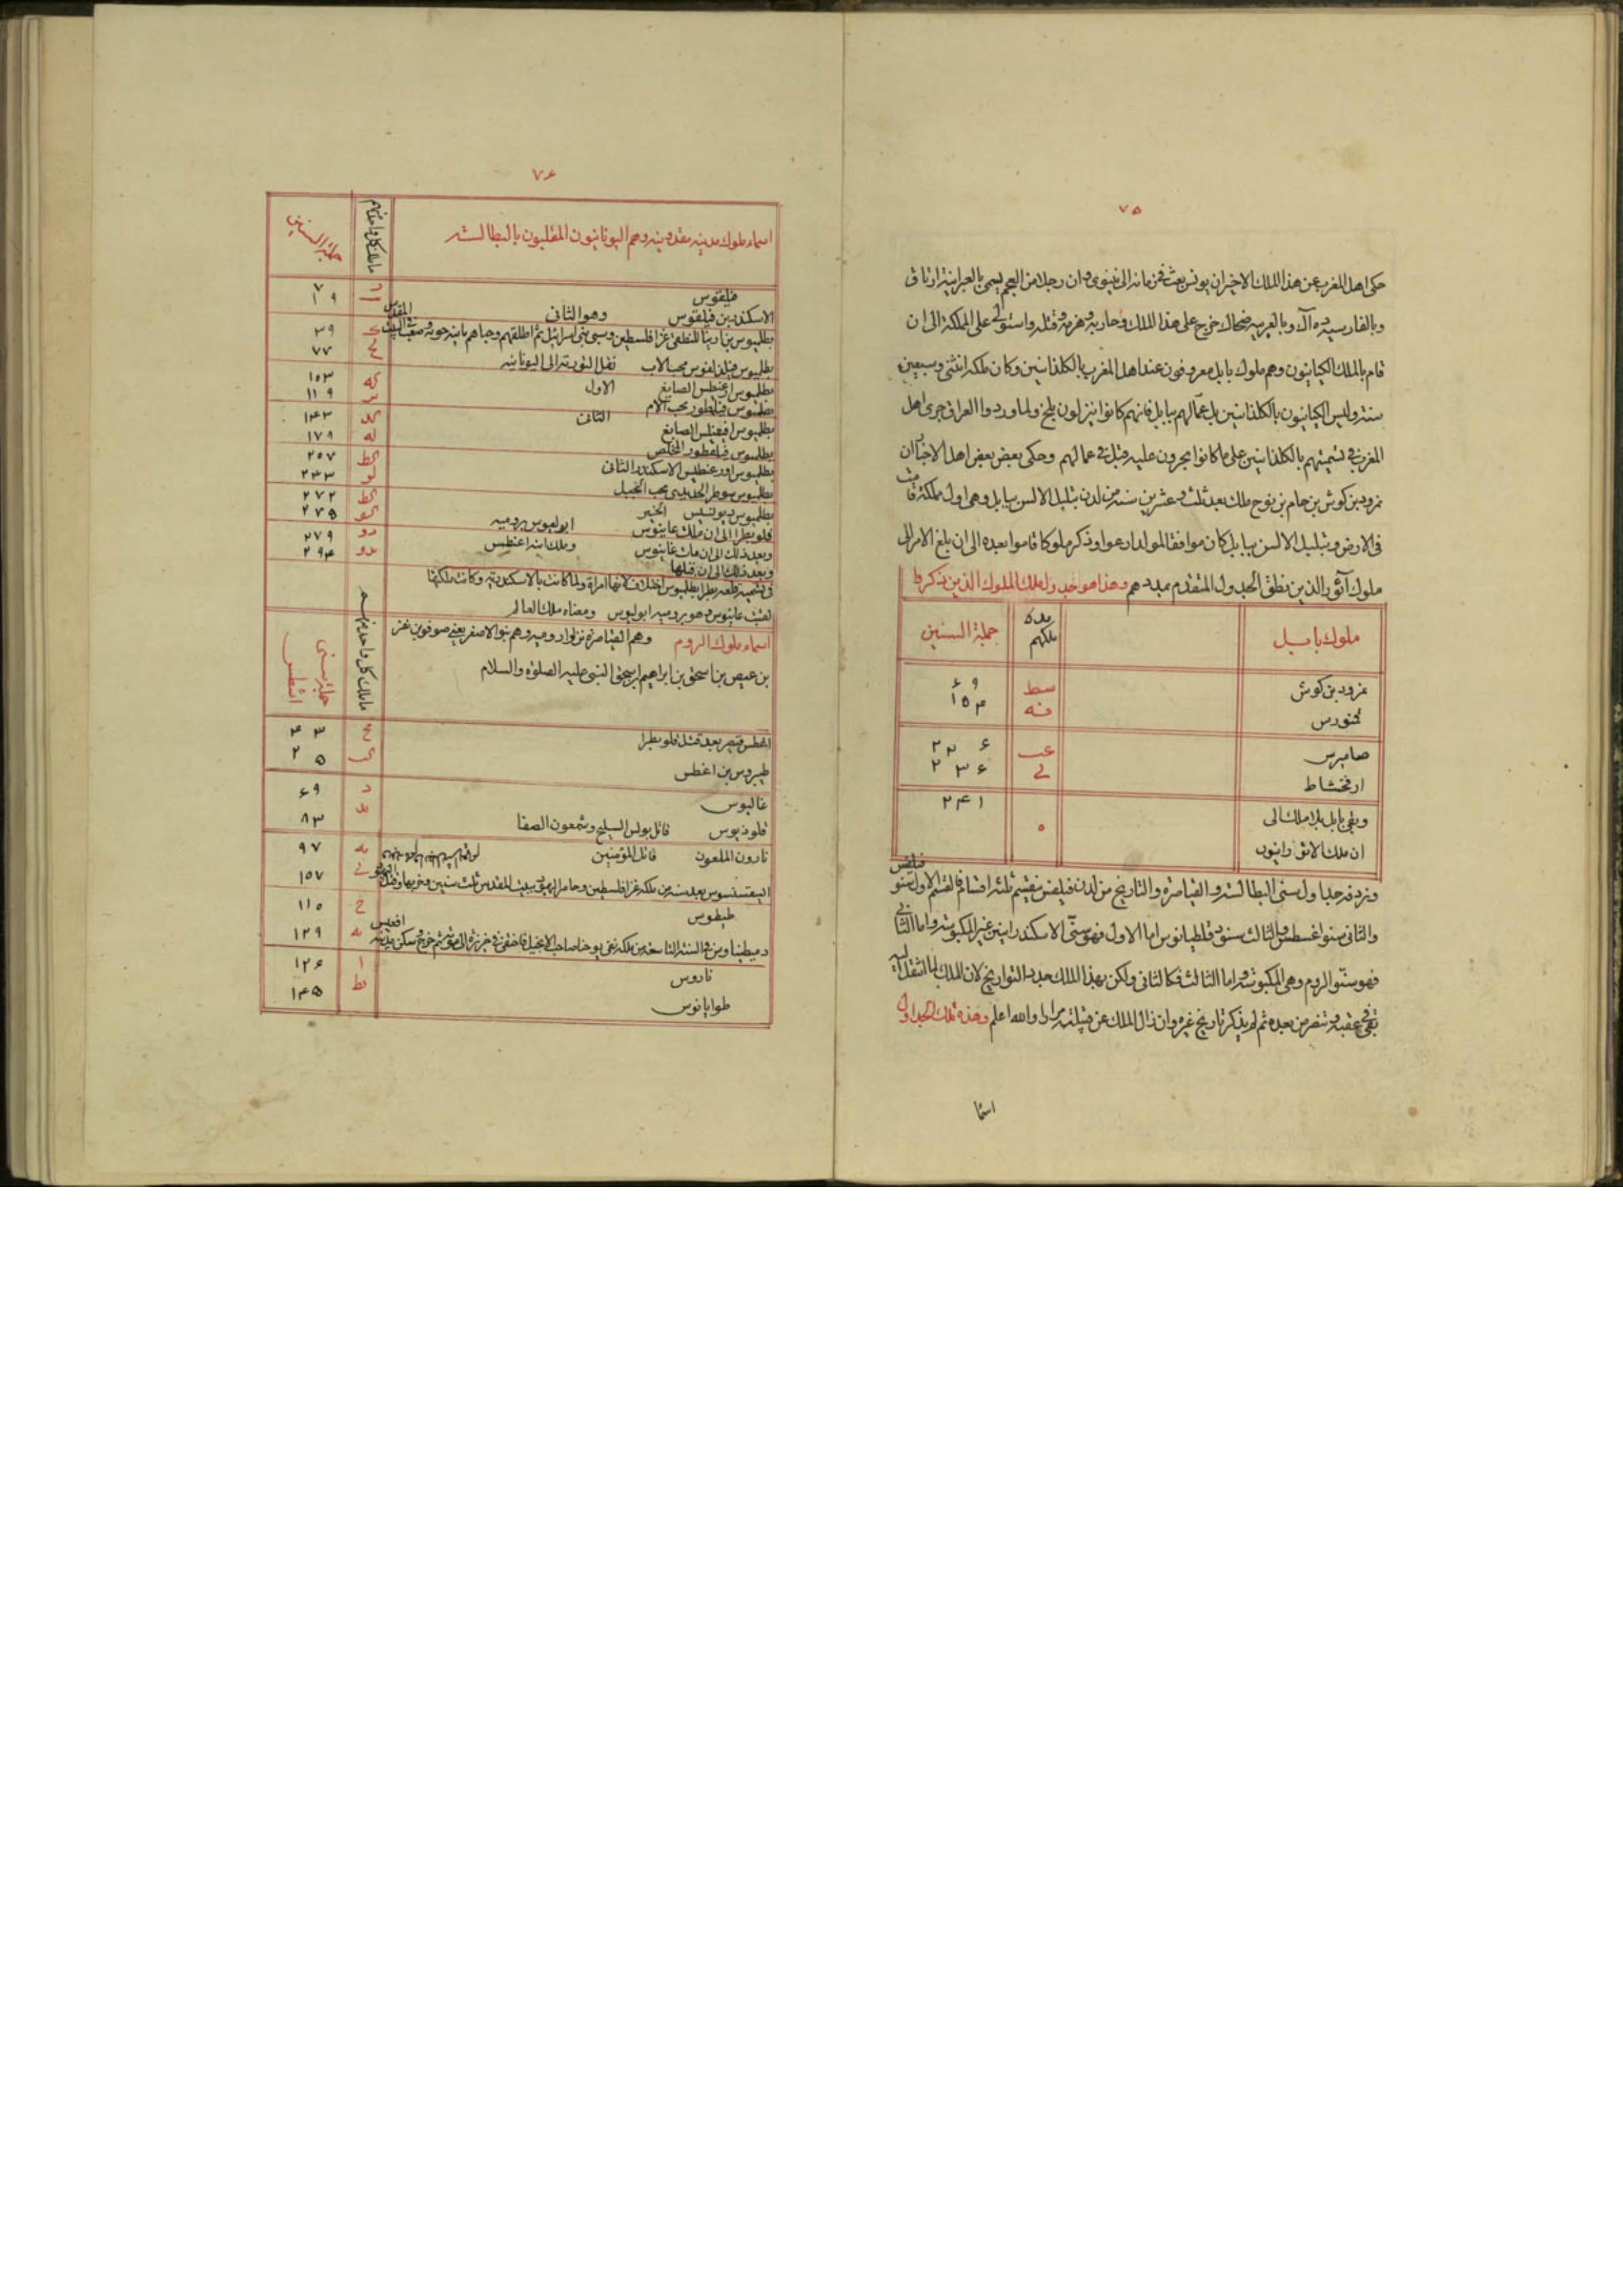 ٧٥
حكى اهل المغرب عن هذا الملك الاخير ان يونس بعث فى زمانه الى نينوى وان رجلا من العجم يسمى بالعبرانية ارتاق
وبالفارسية ده آك وبالعربية ضحاك خرج على هذا الملك وحاربه وهزمه وقتله واستولى على المملكة الى ان
قام بالملك الكيانيون وهم ملوك بابل معروفون عند اهل المغرب بالكلذانيين وكان ملكه اثنتى وسبعين
سنة وليس الكيانيون بالكلذانيين بل عمّالهم ببابل فانهم كانوا ينزلون بلخ ولما وردوا العراق جرى اهل
المغرب فى تسميتهم بالكلذانيين على ما كانوا يجرون عليه قبل فى عمالهم وحكى بعض بعض اهل الاخبار ان
نمرود بن كوش بن حام بن نوح ملك بعد ثلث وعشرين سنة من لدن تبلبل الالسن ببابل وهى اول مملكة قامت
فى الارض وتبلبل الالسن ببابل كان موافقا لمولد ارعوا وذكر ملوكا قاموا بعده الى ان بلغ الامر الى
ملوك آثور الذين نطق الجدول المتقدم بمددهم وهذا هو جدول تلك الملوك الذين ذكرها
ملوك بابل
مدة ملكهم
جملة السنين
نمرود بن كوش سط ٦٩
قمنورس فه ١٥٤
صاميرس عب ٢٢٦
ارفخشاط ى ٢٣٦
وبقى بابل بلا ملك الى ٥ ٢٤١
ان ملك الاثورانيون
ونورد فى جداول سنى البطالسة والقياصرة والتاريخ من لدن فيلفس نقسم ثلثة اقسام فالقسم الاول سنو فيلفس
والثانى سنوا اغسطس والثالث سنو دقلطيانوس اما الاول فهو سنّى الاسكندرانيين غير المكبوسة واما الثانى
فهو سنو الروم وهى المكبوسة واما الثالث فكالثانى ولكن بهذا الملك جدد التواريخ لان الملك لما انتقل اليه
بقى فى عقبه وتنصر من بعده ثم لم يذكر تاريخ غيره وان زال الملك عن قبيلته مرارا والله اعلم وهذه تلك الجداول
اسما
٧٦
اسماء ملوك مدينة مقدونية وهم اليونانيون الملقبون بالبطالسة
ما ملك كل واحد منهم
جملة السنين
فيلقوس ٧
الاسكندر بن فيلقوس وهو الثانى ١٩
بطلميوس بن ارنبا المنطقى غزا فلسطين وسبى بنى اسرائيل ثم اطلقهم وحباهم بآنية البيت المقدس ٣٩
بطلميوس فيلذلفوس محب الاب نقل التورية الى اليونانية ٧٧
بطلميوس اغسطس الصايغ الاول ١٠٣
بطلميوس فيلفطور محب الام ١١٩
بطلميوس افيفنيس الصايغ الثانى ١٤٣
بطلميوس فيلفطور المخلص ١٧٩
بطلميوس اورغطيس الاسكندر الثانى ٢٠٧
بطلميوس سوطر الحديدى محب الجميل ٢٣٣
بطلميوس ديونسيس الخير ٢٧٢
قلوبطرا الى ان ملك غاينوس ابوليوس برومية ٢٧٥
وبعد ذلك الى ان مات غاينوس وملك ابنه اغسطس ٢٧٩
وبعد ذلك الى ان قتلها ٢٩٤
فى تسمية قلوبطرا بطلميوس اختلاف لانها امرأة ولما كانت بالاسكندرية وكانت ملكتها
لقبت غاينوس وهو برومية ابوليوس ومعناه ملك العالم
اسماء ملوك الروم وهم القياصرة نزلوا رومية وهم بنو الاصفر يعنى صوفر بن نفر
بن عيص بن اسحق بن ابراهيم اسحق النبى عليه الصلوة والسلام
ما ملك كل واحد منهم
جملة سنى اغسطس
اغسطس قيصر بعد قتله قلوبطرا مج ٤٣
طيبريوس بن اغطس كب ٢٥
غاليوس د ٦٩
قلوذيوس قاتل بولس السليح وشمعون الصفا يد ٨٣
نارون الملعون قاتل المؤمنين يد ٩٧
اسفسنسوس بعد سنة من ملكه غزا فلسطين وحاصر اليهود ببيت المقدس ثلث سنين وخربها ى ١٥٧
طيطوس ح ١١٥
دميطيناوس فى السنة التاسعة من ملكه نفى يوحنا صاحب الانجيل فاختفى فى جزيرة الى موته ثم خرج وسكن مدينة افسس يه ١٢٩
ناروس ا ١٢٦
طوايانوس يط ١٤٥